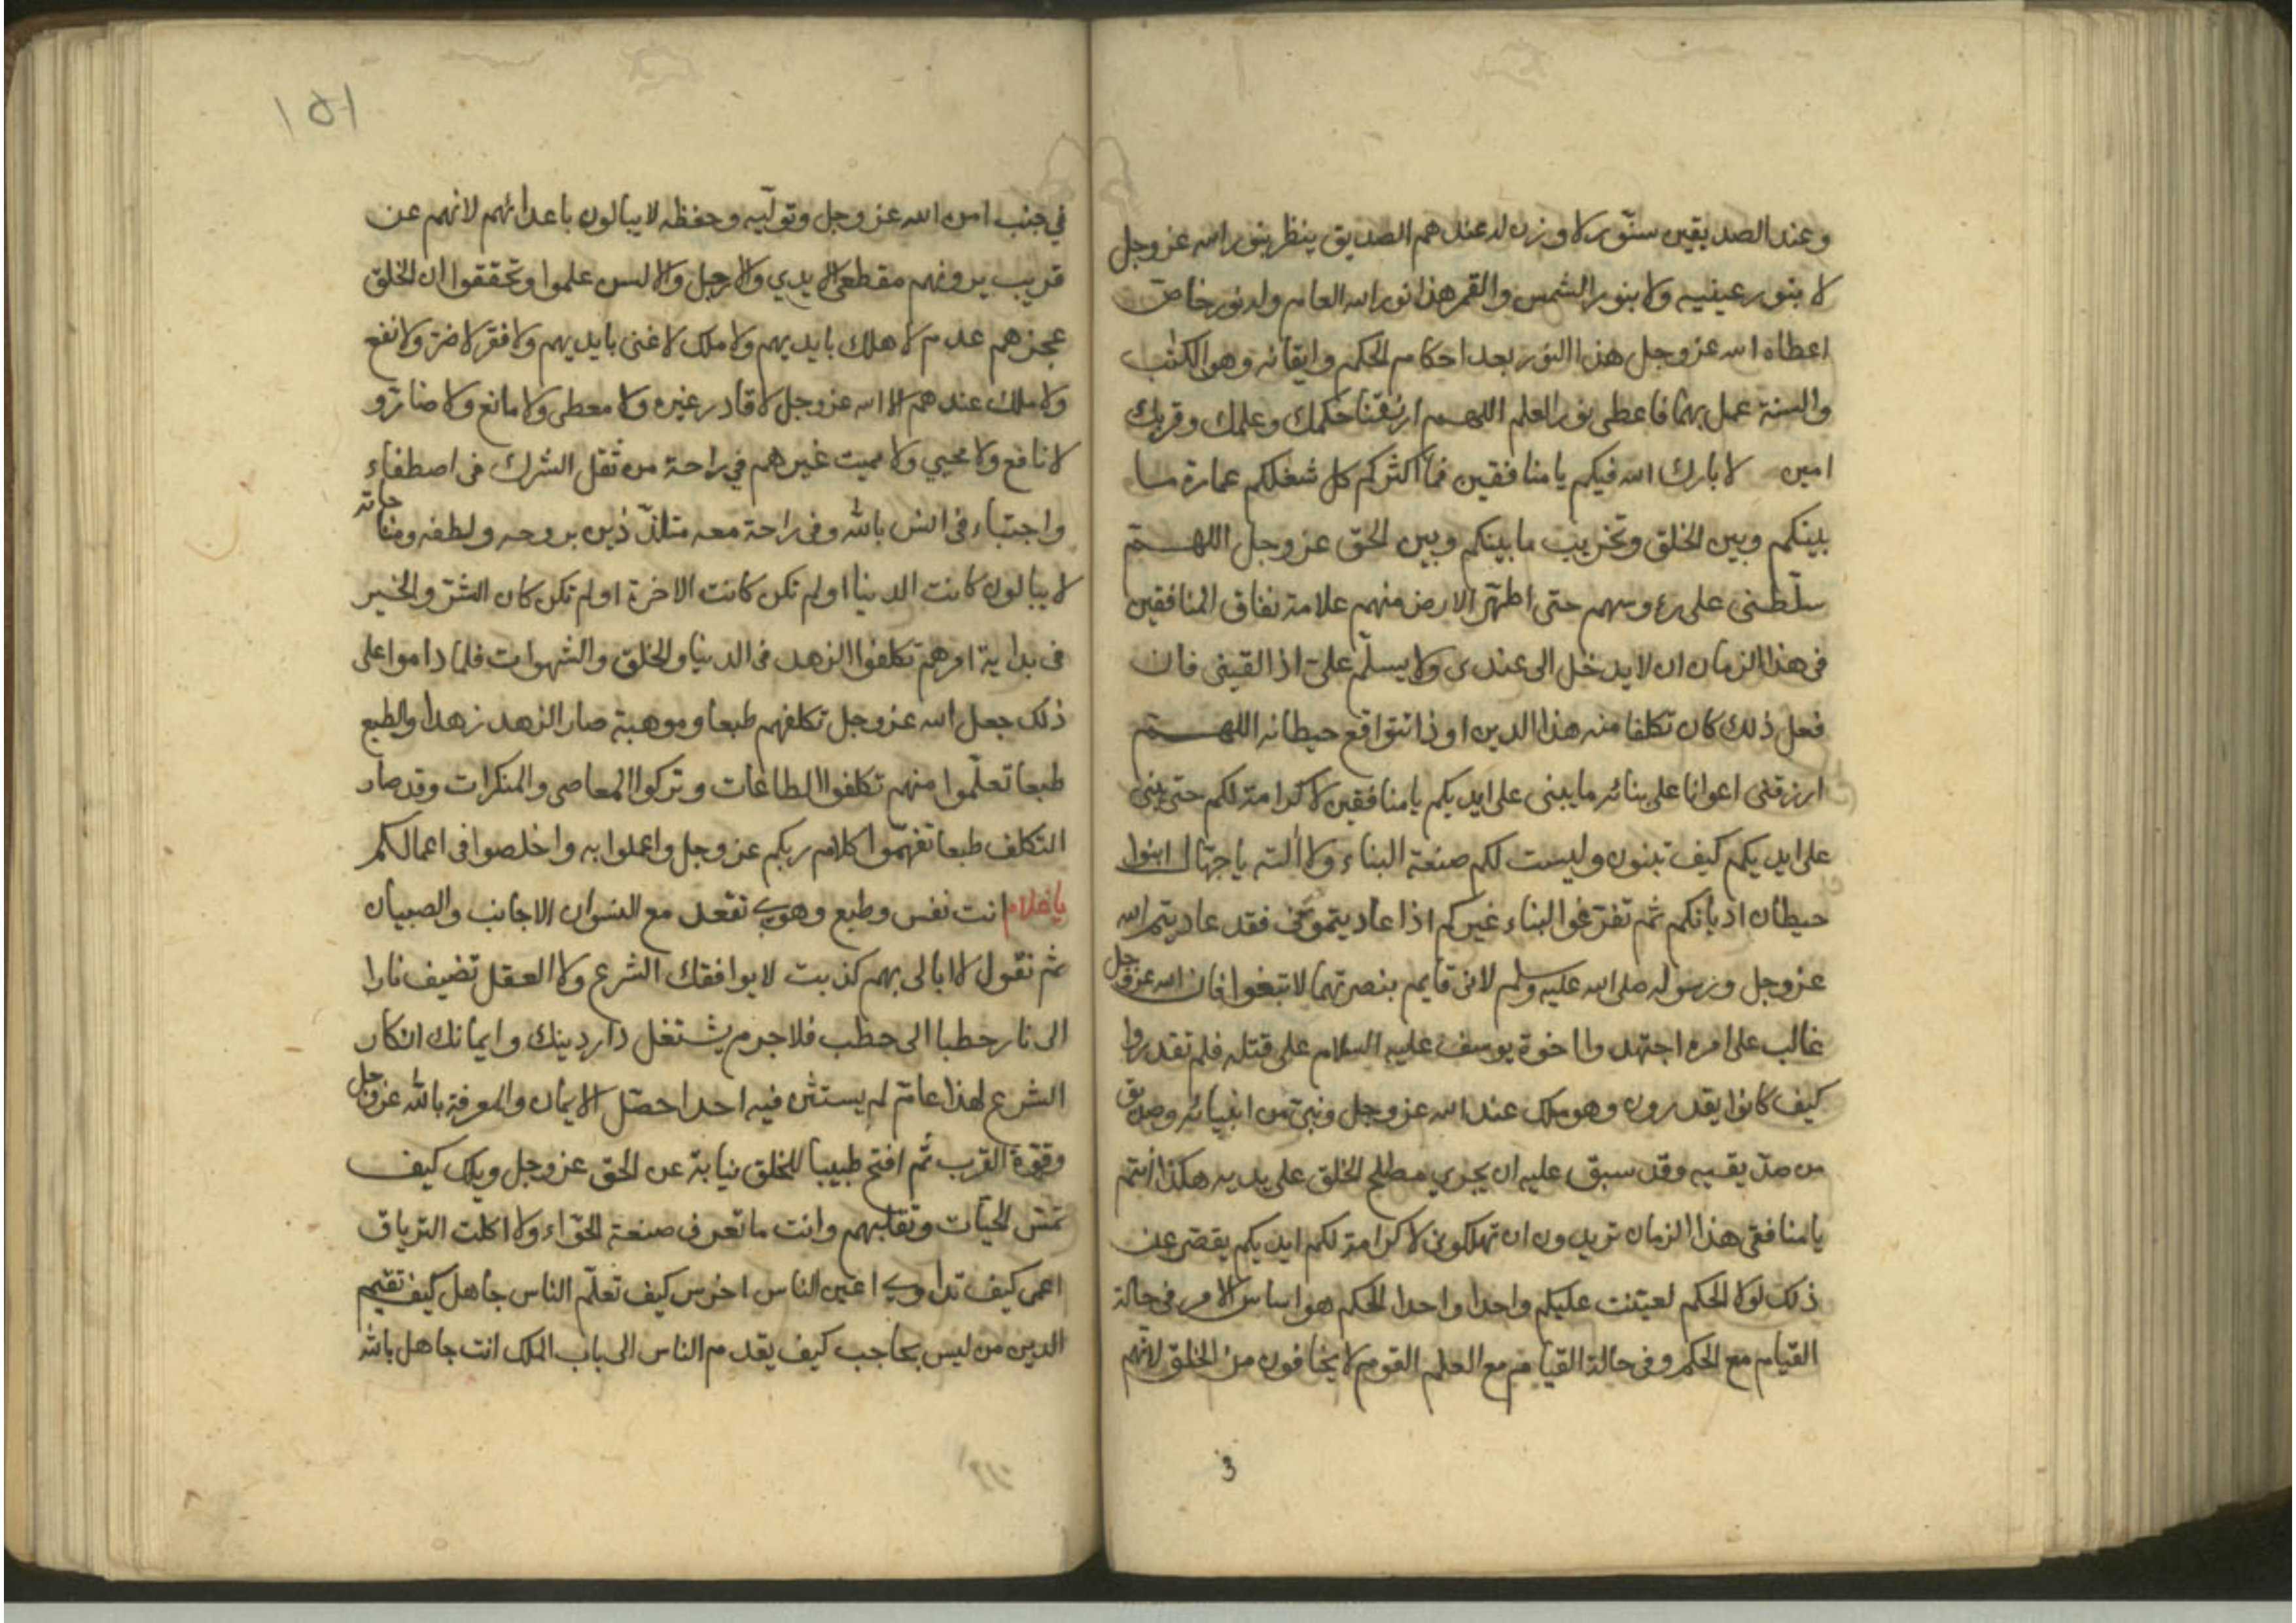 وعند الصديقين سنّور لا وزن له عندهم الصديق ينظر بنور الله عز وجل
لا بنور عينيه ولا بنور الشمس والقمر هذا نور الله العام وله نور خاص
اعطاه الله عز وجل هذا النور بعد احكام الحكم وايقانه وهو الكتب
والسنة عمل بهما فاعطى نور العلم اللهم ارزقنا حكمك وعلمك وقربك
امين لا بارك الله فيكم يا منافقين فما اكثركم كل شغلكم عمارة ما
بينكم وبين الخلق وتخريب ما بينكم وبين الحق عز وجل اللهم
سلّطنى على رءوسهم حتى اطهّر الارض منهم علامة نفاق المنافقين
فى هذا الزمان ان لا يدخل الى عندى ولا يسلّم علىّ اذا القينى فان
فعل ذلك كان تكلفا منه هذا الدين تتواقع حيطانه اللهم
ارزقنى اعوانا على بنائه ما يبنى على ايديكم يا منافقين لا كرامة لكم حتى يبنى
على ايديكم كيف تبنون وليست لكم صنعة البناء ولا ألته يا جهّال ابنوا
حيطان اديانكم ثم تفرّغوا لبناء غيركم اذا عاديتمونى فقد عاديتم الله
عز وجل ورسوله صلى الله عليه وسلم لانى قايم بنصرتهما لا تبغوا فان الله عز وجل
غالب على امره اجتهد واا خوة يوسف عليه السلام على قتله فلم تقدروا
كيف كانوا يقدرون وهو ملك عند الله عز وجل ونبىّ من انبيائه وصديق
من صدّيقيه وقد سبق عليه ان يجري مصلح الخلق على يديه هكذا أنتم
يا منافقى هذا الزمان تريدون ان تهلكونى لا كرامة لكم ايديكم يقصر عن
ذلك لولا الحكم لعيّنت عليكم واحدا واحدا الحكم هو اساس الامر فى حالة
القيام مع الحكم وفى حالة القيام مع العلم القوم لا يخافون من الخلق لانهم
3
151
في جنب امن الله عز وجل وتولّيه وحفظه لا يبالون باعدائهم لانهم عن
قريب يرونهم مقطعى الايدي والارجل والالسن علموا وتحققوا ان الخلق
عجزهم عدم لا هلك بايديهم ولا ملك لا غنى بايديهم ولا فقر لا ضرّ ولا نفع
ولا ملك عندهم الا الله عز وجل لا قادر غيره ولا معطى ولا مانع ولا ضارّ و
لا نافع ولا محيي ولا مميت غيرهم في راحة من ثقل الشرك فى اصطفاء
واجتباء فى انس بالله وفى راحة معه متلذّذين بروحه ولطفه ومناجاته
لا يبالون كانت الدنيا اولم تكن كانت الاخرة اولم تكن كان الشرّ والخير
فى بداية امرهم تكلفوا الزهد فى الدنيا والخلق والشهوات فلما داموا على
ذلك جعل الله عز وجل تكلفهم طبعا وموهبة صار الزهد زهدا والطبع
طبعا تعلّموا منهم تكلفوا الطاعات وتركوا المعاصى والمنكرات وقد صار
التكلف طبعا تفهّموا كلام ربكم عز وجل واعملوا به واخلصوا فى اعمالكم
يا غلام انت نفس وطبع وهوى تقعد مع النسوان الاجانب والصبيان
ثم تقول لا ابالى بهم كذبت لا يوافقك الشرع ولا العقل تضيف نارا
الى نار حطبا الى حطب فلا جرم يشتغل دار دينك وايمانك انكار
الشرع لهذا عامّ لم يستثن فيه احدا حصّل الايمان والمعرفة بالله عز وجل
وقوّة القرب ثم افتح طبيبا للخلق نيابة عن الحق عز وجل ويلك كيف
تمسّ الحيات وتقلبهم وانت ما تعرف صنعة الحوّاء ولا اكلت الترياق
اعمى كيف تداوي اعين الناس اخرس كيف تعلّم الناس جاهل كيف تقيم
الدين من ليس بحاجب كيف يقدم الناس الى باب الملك انت جاهل بالله